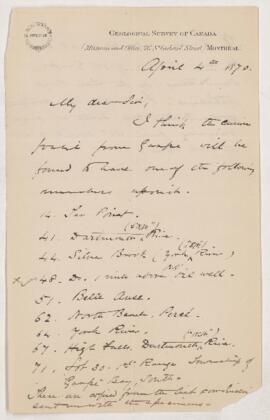 GEOLOGICAL SURVEY OF CANADA
(Museum and Office, 76 St Gabriel Street) MONTREAL
April 4th 1870.
My dear Sir,
I think the
from Gaspé will be
found to have one of the following
numbers upon it.
14. Tar Point.
(GASPÉ)
41. Dartmouth River.
(GASPÉ)
44. Silver Brook (York River)
oil
48. Do. 1 mile above oil well.
51. Belle Anse.
62. North Beach, Percé.
64. York River
(GASPÉ)
67. High Falls, Dartmouth River.
71. Lot 20. 1st Range Township of
Gaspé Bay, South.
These are copied from the list
sent with the specimens.